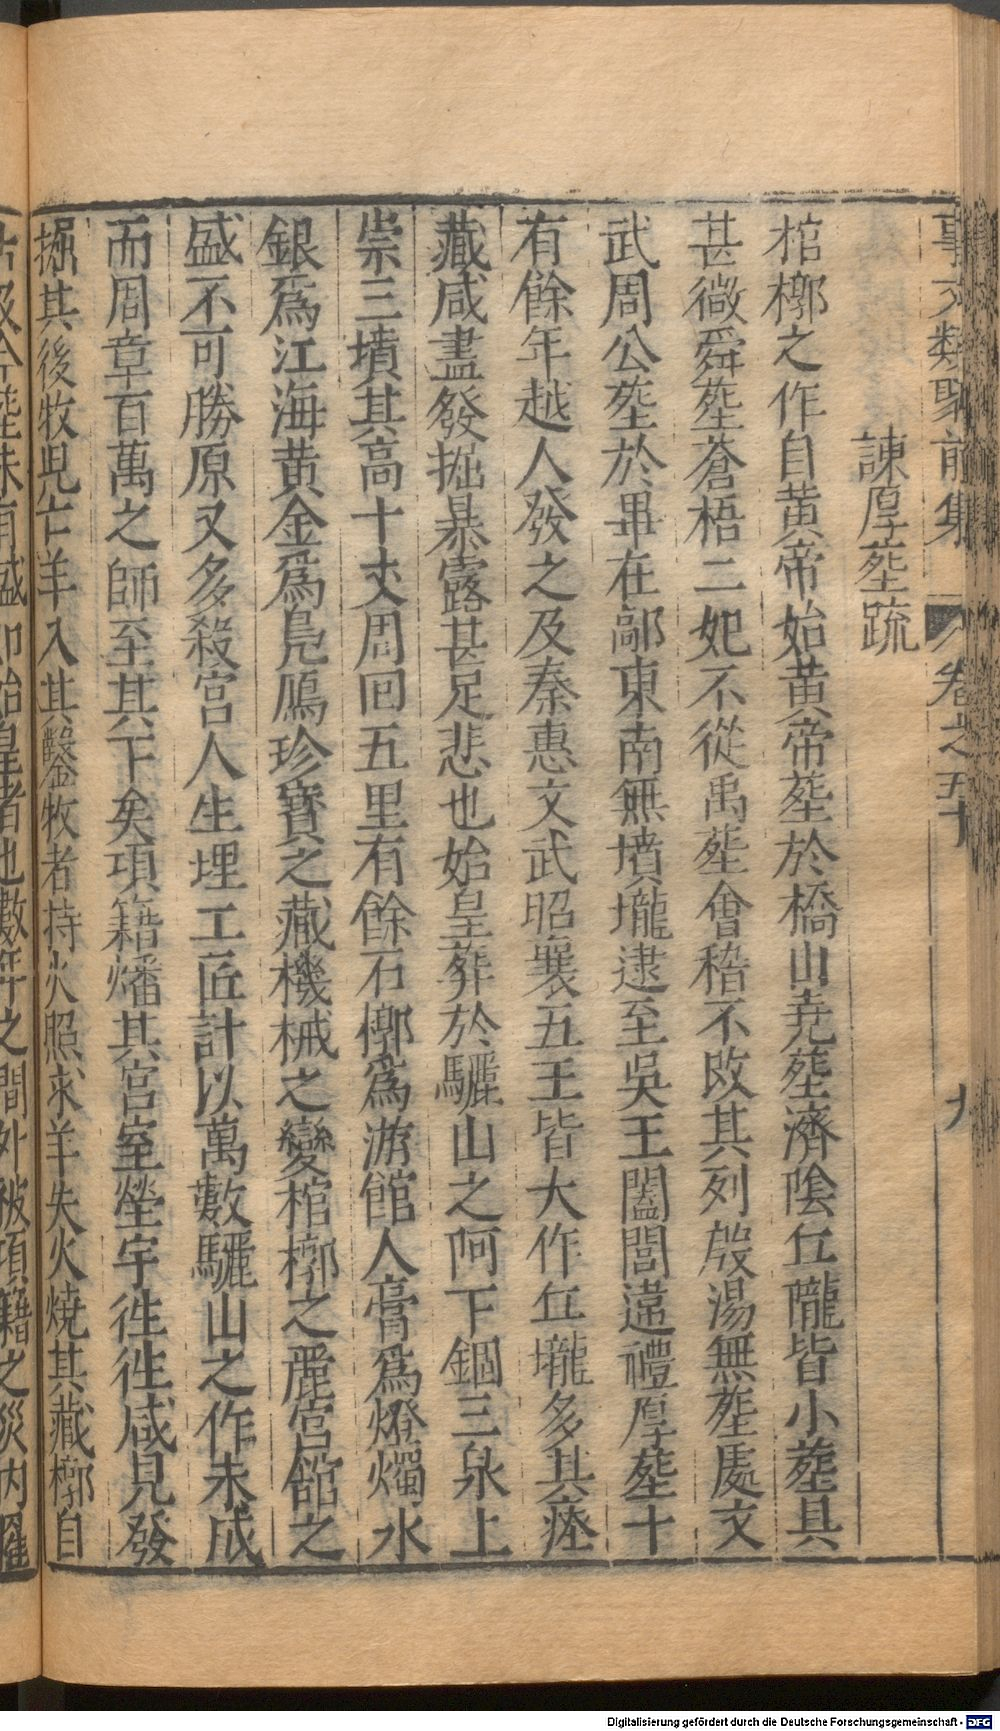 事文類聚前集 卷之五十 九
諫厚塟疏
棺槨之作自黃帝始黃帝塟於橋山堯塟濟陰丘隴皆小塟具
甚微舜塟蒼梧二妃不從禹塟會稽不改其列殷湯無塟處文
武周公塟於畢在鄗東南無墳壠逮至吳王闔閭違禮厚塟十
有餘年越人發之及秦惠文武昭襄五王皆大作丘壠多其瘞
藏咸盡發掘暴露甚足悲也始皇葬於驪山之阿下錮三泉上
崇三墳其高十丈周回五里有餘石槨爲游館人膏爲燈燭水
銀爲江海黃金爲鳧鴈珍寶之藏機械之變棺槨之麗宮館之
盛不可勝原又多殺宮人生埋工匠計以萬數驪山之作未成
而周章百萬之師至其下矣項籍燔其宮室塋宇徃徃咸見發
掘其後牧兒亡羊入其鑿牧者持火照求羊失火燒其藏槨自
古及今塟未有盛如始皇者也數年之間外被項籍之災内罹
Digitalisierung gefördert durch die Deutsche Forschungsgemeinschaft - DFG